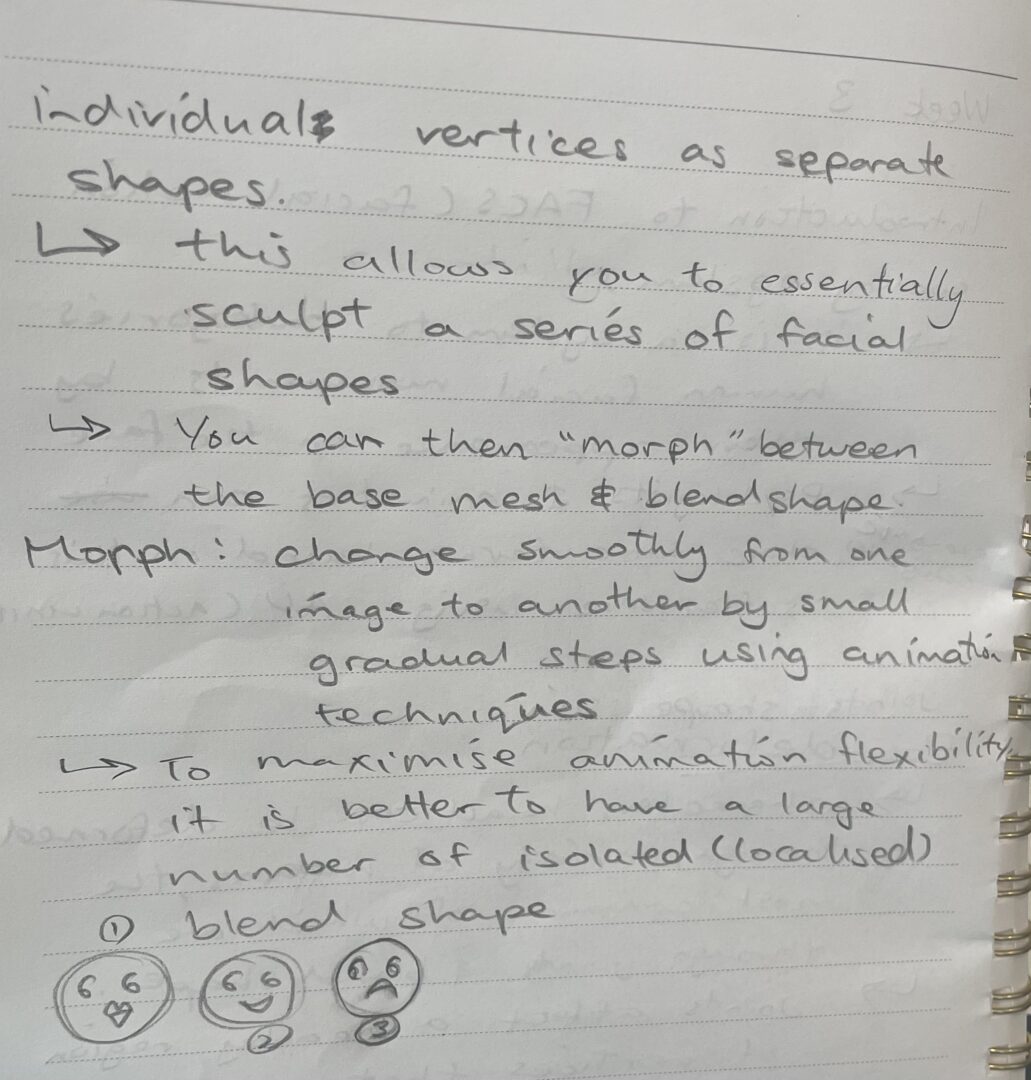 individuals vertices as separate
shapes.
↳ this allows you to essentially
sculpt a series of facial
shapes
↳ You can then "morph" between
the base mesh & blendshape.
Morph: change smoothly from one
image to another by small
gradual steps using animation
techniques
↳ To maximise animation flexibility
it is better to have a large
number of isolated (localised)
① blend shape
② ③